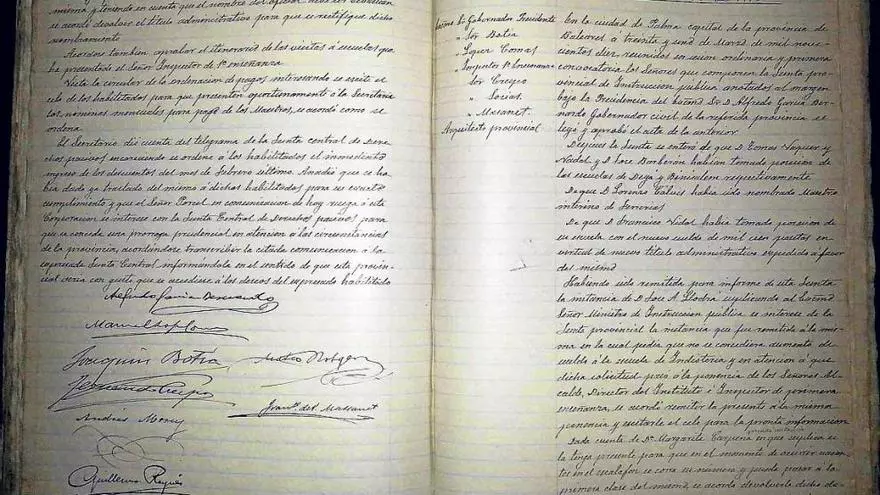 misma, y teniendo en cuenta que el nombre del
se acordó devolver el título administrativo para que se rectifique dicho
nombramiento.
Acordose tambien aprobar el itenerario de las visitas á escuelas que
há presentado el Señor Inspector de 1ª enseñanza.
Vista la circular de la ordenacion de pagos interesando se excite el
celo de los habilitados para que presenten oportunamente á la Secretaría
las nominas mensuales para pago de los Maestros, se acordó como se
ordena.
El Secretario dió cuenta del telegrama de la Junta central de Dere-
chos pasivos encareciendo se ordene á los habilitados el inmediato
ingreso de los descuentos del mes de Febrero último. Añadió que se ha-
bía dado ya traslado del mismo á dichos habilitados para su exacto
cumplimiento y que el Señor Porcel en comunicacion de hoy ruega á esta
Corporacion se interese con la Junta Central de Derechos pasivos para
que se conceda una prorroga prudencial en atencion á las circunstancias
de la provincia, acordándose transcribir la citada comunicacion á la
expresada Junta Central informándola en el sentido de que esta provin-
cial veria con gusto que se accediese á los deseos del expresado habilitado
Alfredo Garcia Bernardo
Manuel Lopez Comas
Joaquin Botia
Mateo Rotger
Fernando Crespo
Franco del Massanet
Andres Morey
Guillermo Reynés
Gobernador Presidente
" Sor Botia
" Lopez Comas
" Inspector 1ª enseñanza
Sor Crespo
" Socias
" Masanet
Arquitecto provincial
En la ciudad de Palma capital de la provincia de
Baleares á treinta y uno de Marzo de mil nove-
cientos diez, reunidos en sesion ordinaria y primera
convocatoria los Señores que componen la Junta pro-
vincial de Instruccion publica anotados al margen
bajo la Presidencia del Excmo Sr. D. Alfredo Garcia Ber-
nardo Gobernador civil de la referida provincia se
leyó y aprobó el acta de la anterior.
Despues la Junta se enteró de que D. Tomas Vaquer y
Nadal y D. Jose Barberán habían tomado posesion de
las escuelas de Deyá y Binisalem respectivamente.
De que D. Lorenzo había sido nombrado Maestro
interino de Ferrerias
De que D. Francisco Vidal había tomado posesion de
su escuela con el nuevo sueldo de mil cien pesetas en
virtud de nuevo título administrativo expedido á favor
del mismo
Habiendo sido remitida para informe de esta Junta
la instancia de D. Jose A. Llodra suplicando al Excmo
Señor Ministro de Instruccion publica se interese de la
Junta provincial la instancia que fue remitida á la mis-
ma en la cual pedia que no se considere aumento de
sueldo á la escuela de Indioteria y en atencion á que
dicha solicitud pasó á la ponencia de los Señores Al-
calde, Director del Instituto é Inspector de primera
enseñanza, se acordó remitir la presente á la misma
ponencia y excitarle el celo para la pronta informacion
Dada cuenta de Dª Margarita Carpena en que suplica se
la tenga presente para que en el momento de ocurrir vacan-
tes en el escalafon se corra su numero y pueda pasar á la
primera clase del mismo, se acordó devolverla dicho do-